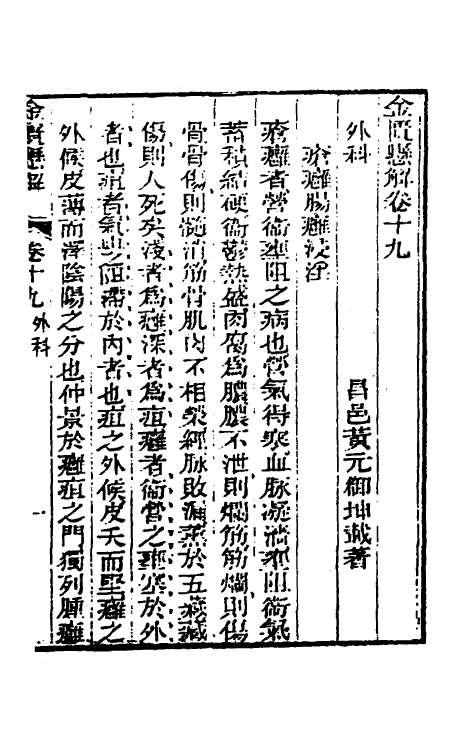 金匱懸解卷十九
昌邑黃元御坤載著
外科
瘡癰腸癰浸淫
瘡癰者營衛壅阻之病也營氣得寒血脉凝澁壅阻衛氣
蓄積結硬衛鬱熱盛肉腐爲膿膿不泄則爛筋筋爛則傷
骨骨傷則髓消筋骨肌肉不相榮經脉敗漏薰於五藏藏
傷則人死矣淺者爲癰深者爲疽癰者衛營之壅塞於外
者也疽者氣血之阻滯於內者也疽之外候皮夭而堅癰之
外候皮薄而澤陰陽之分也仲景於癰疽之門獨列腫癰
金匱懸解
卷十九 外科
一